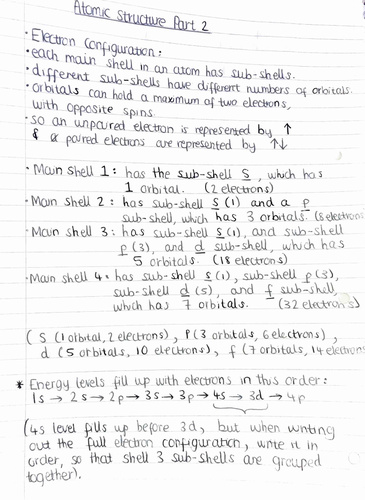 Atomic Structure Part 2
• Electron Configuration:
• each main shell in an atom has sub-shells.
• different sub-shells have different numbers of orbitals.
• orbitals can hold a maximum of two electrons,
with opposite spins.
• so an unpaired electron is represented by ↑
& paired electrons are represented by ↑↓
• Main shell 1: has the subshell s, which has
1 orbital. (2 electrons)
• Main shell 2: has sub-shell s(1) and a p
sub-shell, which has 3 orbitals. (8 electrons
• Main shell 3: has sub-shell s(1), and sub-shell
p(3), and d sub-shell, which has
5 orbitals. (18 electrons)
• Main shell 4: has sub-shell s(1), sub-shell p(3),
sub-shell d(5), and f sub-shell,
which has 7 orbitals. (32 electrons)
( s (1 orbital, 2 electrons), p(3 orbitals, 6 electrons),
d (5 orbitals, 10 electrons), f (7 orbitals, 14 electrons
* Energy levels fill up with electrons in this order:
1s → 2s → 2p → 3s → 3p → 4s → 3d → 4p
(4s level fills up before 3d, but when writing
out the full electron configuration, write it in
order, so that shell 3 sub-shells are grouped
together).